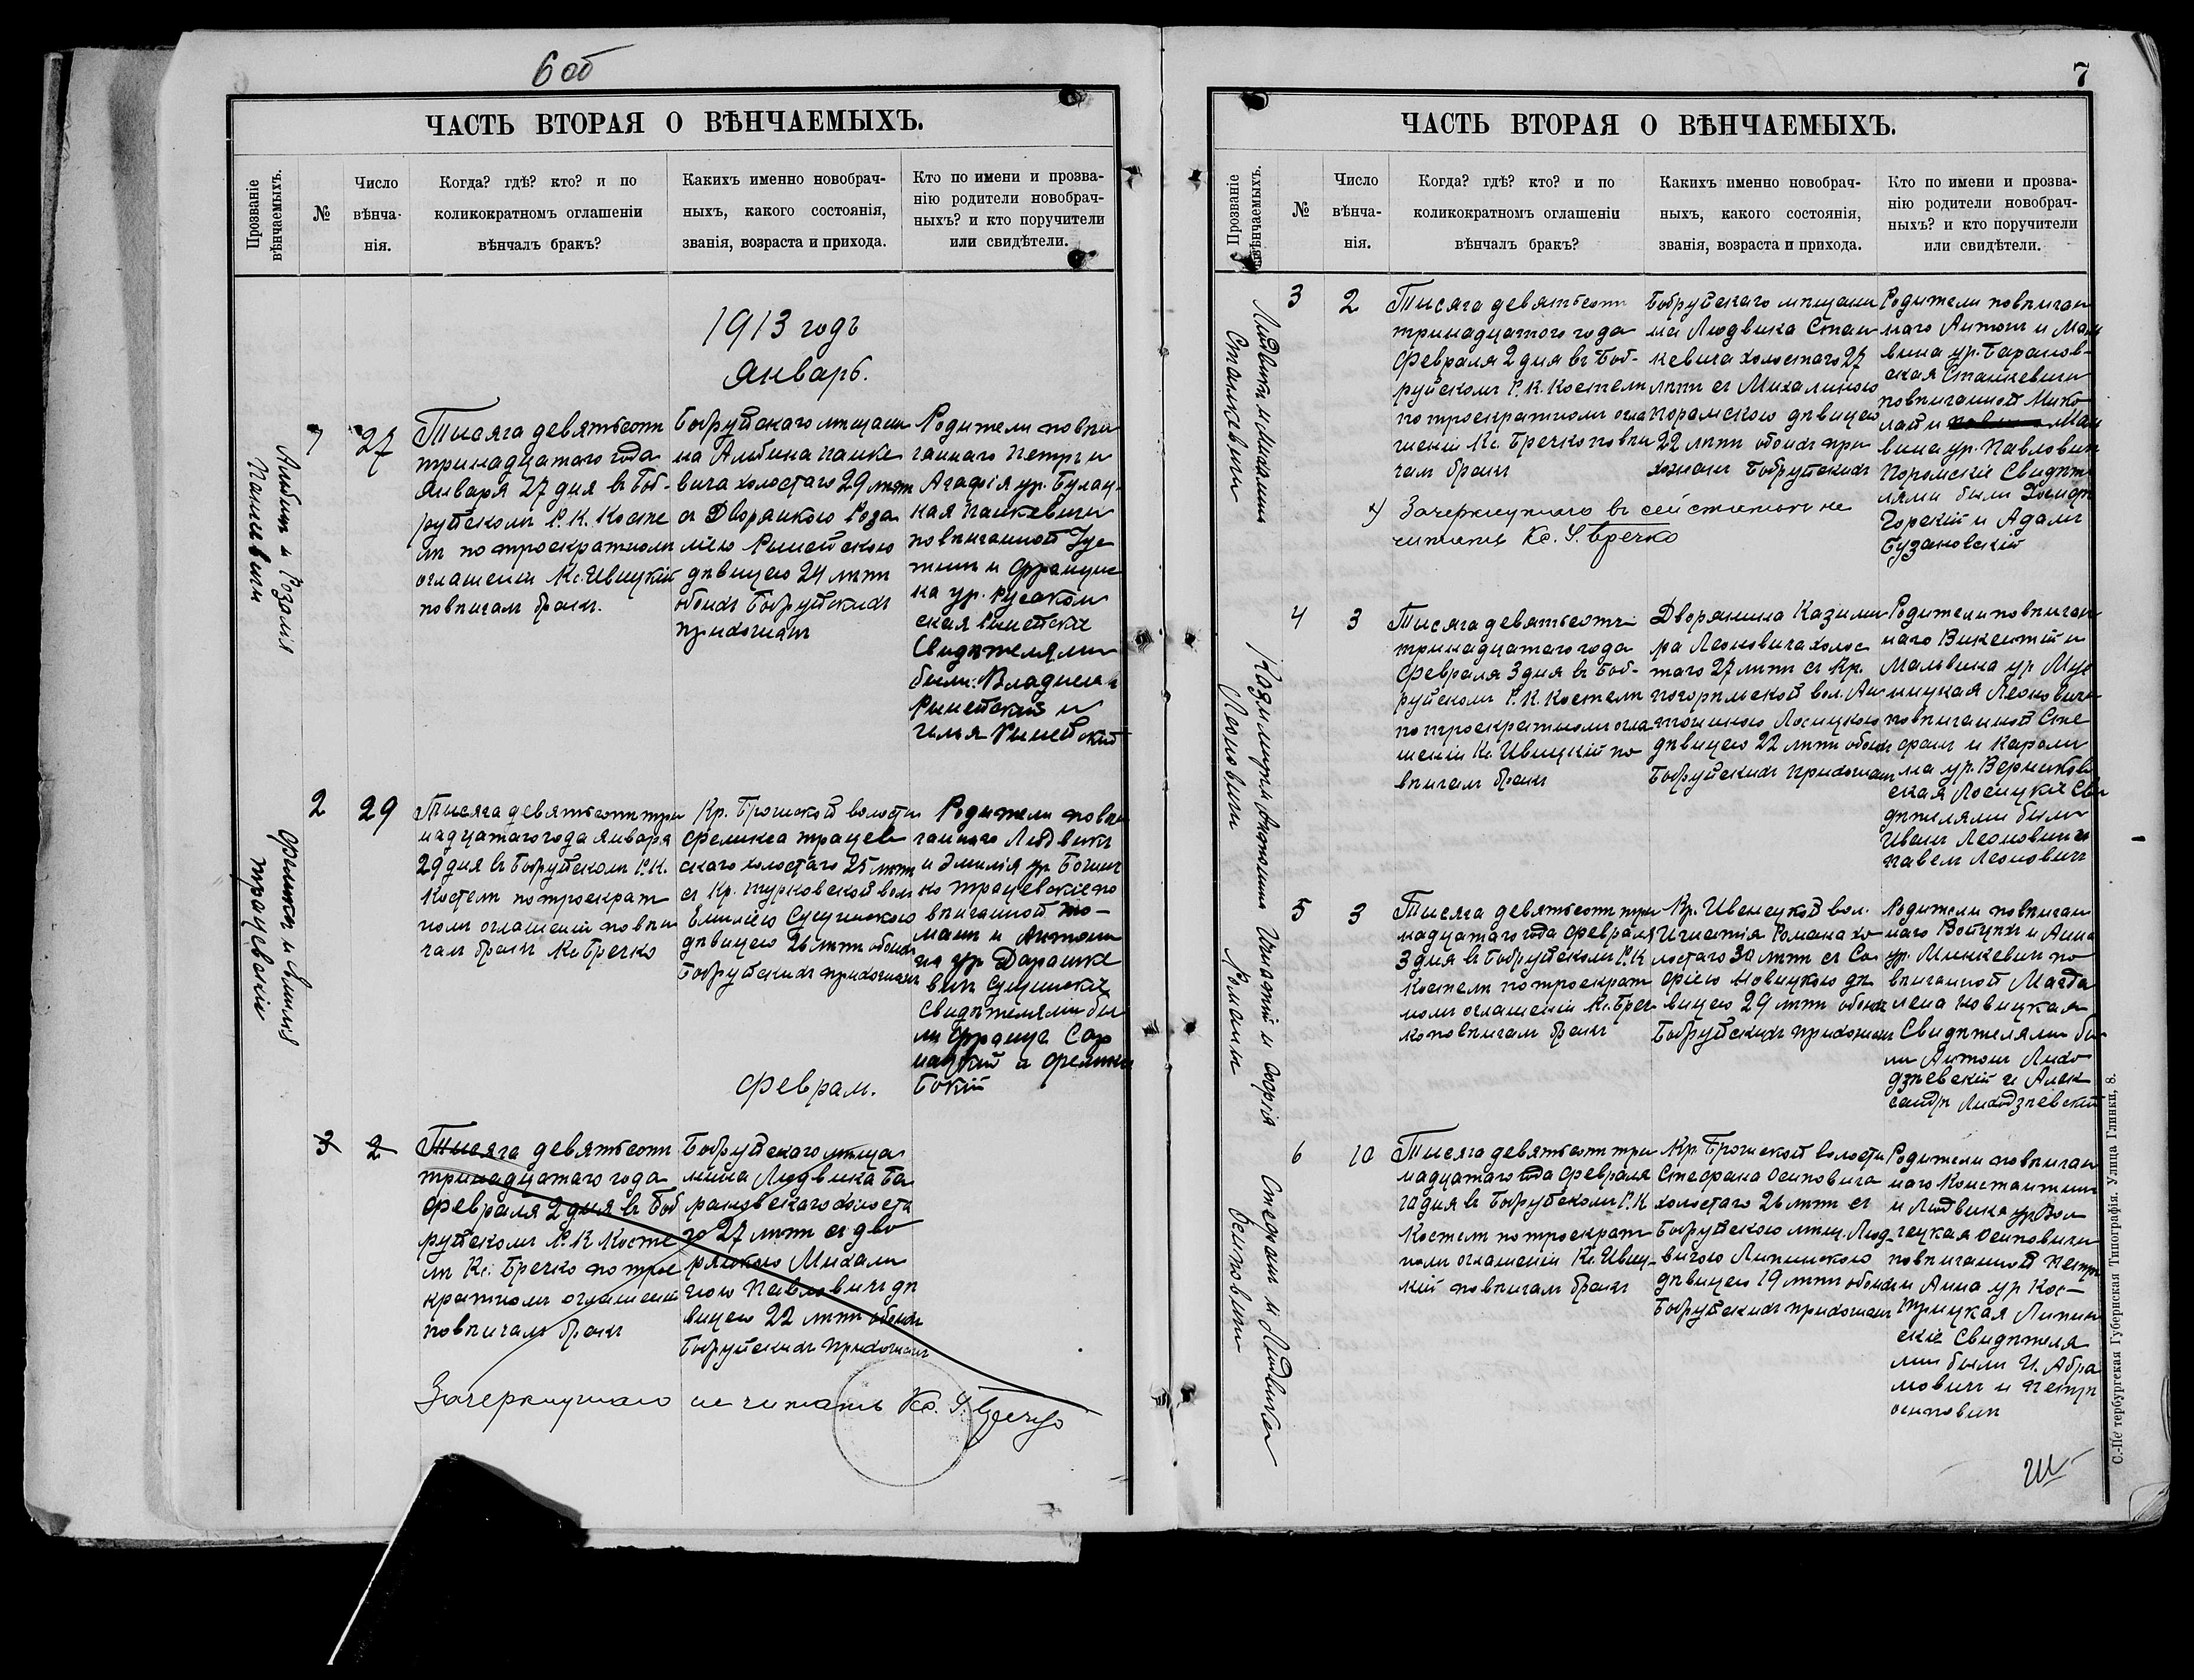 6 об
ЧАСТЬ ВТОРАЯ О ВѢНЧАЕМЫХЪ.
Прозваніе
вѣнчаемыхъ.
№
Число
вѣнча-
нія.
Когда? гдѣ? кто? и по
коликократномъ оглашеніи
вѣнчалъ бракъ?
Какихъ именно новобрач-
ныхъ, какого состоянія,
званія, возраста и прихода.
Кто по имени и прозва-
нію родители новобрач-
ныхъ? и кто поручители
или свидѣтели.
1913 годъ
Январь.
Альбинъ и Розалія
Панкевичи
1
27
Тысяча девятьсотъ
тринадцатаго года
Января 27 дня въ Боб-
руйскомъ Р. К. Косте
лѣ по троекратномъ
оглашеніи Кс. Ивицкій
повѣнчалъ бракъ.
Бобруйскаго мѣщани
на Альбина Панке
вича холостаго 29 лѣтъ
съ Дворянкою Роза
ліею
дѣвицею 24 лѣтъ
обоихъ Бобруйскихъ
прихожанъ
Родители повѣн
чаннаго Петръ и
Агафія ур.
Панкевичи
повѣнчанной Юс
тинъ и Францис
ка ур.
Свидѣтелями
были: Владиславъ
Филиксъ и Эмилія
Трацевскіе
2
29
Тысяча девятьсотъ три
надцатаго года Января
29 дня въ Бобруйскомъ Р.К.
Костелѣ по троекрат
номъ оглашеніи повѣн
чалъ бракъ Кс Бречко
Кр. Брожской волости
Феликса Трацев
скаго холостаго 25 лѣтъ
съ Кр. Турковской вол.
Емиліею Сущинскою
дѣвицею 26 лѣтъ обоихъ
Бобруйскихъ прихожанъ
Родители повѣн
чаннаго Людвикъ
и Эмилія ур.
Трацевскіе по
вѣнчанной То-
машъ и Антони
на ур Дарашке
вичъ Сущинскіе
Свидѣтелями бы
ли
Февраль.
3
2
Тысяча девятьсотъ
тринадцатаго года
Февраля 2 дня въ Боб
руйскомъ Р. К Косте
лѣ Кс. Бречко по трое
кратномъ оглашеніи
повѣнчалъ бракъ
Бобруйскаго мѣща
нина Людвика Ба
рановскаго холоста
го 27 лѣтъ съ дво
рянкою Михали
ною Павловичъ дѣ
вицею 22 лѣтъ обоихъ
Бобруйскихъ прихожанъ
Зачеркнутаго не читать Кс. Бречко
7
ЧАСТЬ ВТОРАЯ О ВѢНЧАЕМЫХЪ.
Прозваніе
вѣнчаемыхъ.
№
Число
вѣнча-
нія.
Когда? гдѣ? кто? и по
коликократномъ оглашеніи
вѣнчалъ бракъ?
Какихъ именно новобрач-
ныхъ, какого состоянія,
званія, возраста и прихода.
Кто по имени и прозва-
нію родители новобрач-
ныхъ? и кто поручители
или свидѣтели.
Людвикъ и Михалина
Станкевичи
3
2
Тысяча девятьсотъ
тринадцатаго года
Февраля 2 дня въ Боб-
руйскомъ Р. К. Костелѣ
по троекратномъ огла
шеніи Кс. Бречко повѣн
чалъ бракъ
Бобруйскаго мѣщани
на Людвика Стан
кевича холостаго 27
лѣтъ съ Михалиною
Порамскою дѣвицею
22 лѣтъ обоихъ при
хожанъ Бобруйскихъ
Родители повѣнчан
наго Антонъ и Маль
вина ур. Баранов-
ская Станкевичи
повѣнчанной Нико
лай и Маль
вина ур. Павловичъ
Порамскіе Свидѣте
лями были
Горскій и Адамъ
Бузановскій
х) Зачеркнутаго въ сей статьи не
читать Кс. Бречко
Казимиръ и Антонина
Леоновичи
4
3
Тысяча девятьсотъ
тринадцатаго года
Февраля 3 дня въ Боб-
руйскомъ Р. К. Костелѣ
по троекратномъ огла
шеніи Кс. Ивицкій по
вѣнчалъ бракъ
Дворянина Казими
ра Леоновича холос
таго 27 лѣтъ съ Кр.
Погорѣльской вол. Ан
тониною Лосицкою
дѣвицею 22 лѣтъ обоихъ
Бобруйскихъ прихожанъ
Родители повѣнчан
наго Викентій и
Мальвина ур
Леоновичи
повѣнчанной Сте
фанъ и Кароли
на ур. Верников
ская Лосицкіе Сви
дѣтелями были
Иванъ Леоновичъ и
Павелъ Леоновичъ
Игнатій и Софія
Романы
5
3
Тысяча девятьсотъ три
надцатаго года Февраля
3 дня въ Бобруйскомъ Р. К
Костелѣ по троекрат
номъ оглашеніи Кс. Бреч
ко повѣнчалъ бракъ
Кр. Ивенецкой вол.
Игнатія Романа хо
лостаго 30 лѣтъ съ Со
фіею Новицкою дѣ
вицею 29 лѣтъ обоихъ
Бобруйскихъ прихожанъ
Родители повѣнчан
наго и Анна
ур. Минкевичъ по
вѣнчанной Магда
лена Новицкая
Свидѣтелями бы
ли Антонъ Лихо
дзіевскій и Алек
сандръ Лиходзіевскій
Стефанъ и Людвика
Осиповичи
6
10
Тысяча девятьсотъ три
надцатаго года Февраля
10 дня въ Бобруйскомъ Р. К
Костелѣ по троекрат
номъ оглашеніи Кс. Ивиц-
кій повѣнчалъ бракъ
Кр. Брожской волости
Стефана Осиповича
холостаго 26 лѣтъ съ
Бобруйскою мѣщ. Люд-
викою Липинскою
дѣвицею 19 лѣтъ обоихъ
Бобруйскихъ прихожанъ
Родители повѣнчан
наго Константинъ
и Людвика ур
Осиповичи
повѣнчанной Петръ
и Анна ур Кос-
трицкая Липин
скіе Свидѣтеля
ми были И. Абра
мовичъ и Петръ
Осиповичъ
С.-Петербургская Губернская Типографія. Улица Глинки, 8.